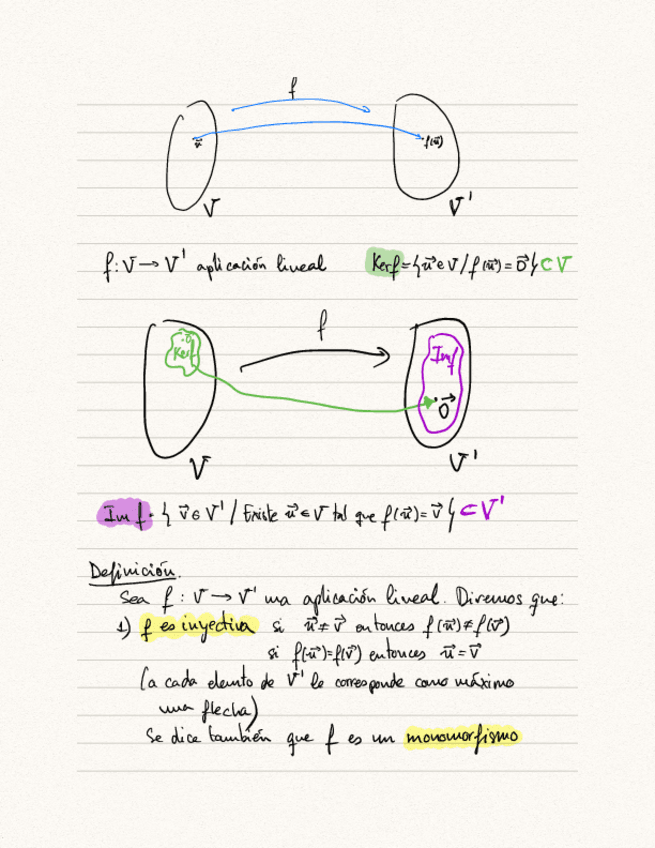 f
u⃗ f(u⃗)
V V'
f: V → V' aplicación lineal Ker f = { u⃗ ∈ V / f(u⃗) = 0⃗ } ⊂ V
f
Ker f Im f
0⃗
V V'
Im f = { v⃗ ∈ V' / Existe u⃗ ∈ V tal que f(u⃗) = v⃗ } ⊂ V'
Definición.
Sea f: V → V' una aplicación lineal. Diremos que:
1) f es inyectiva si u⃗ ≠ v⃗ entonces f(u⃗) ≠ f(v⃗)
si f(u⃗) = f(v⃗) entonces u⃗ = v⃗
(a cada elemento de V' le corresponde como máximo
una flecha)
Se dice también que f es un monomorfismo